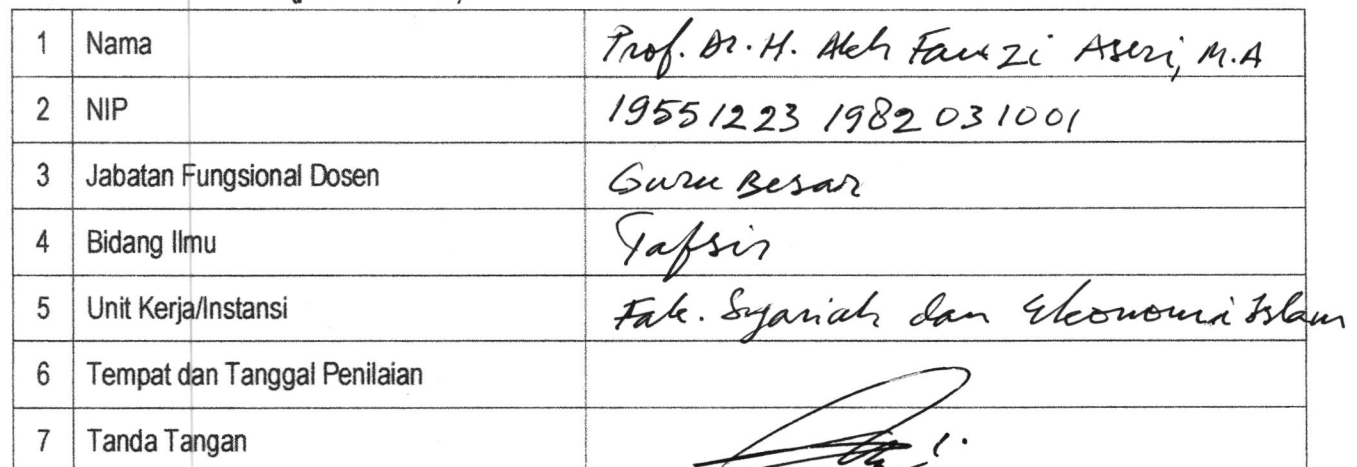 1 Nama Prof. Dr. H. Akh Fauzi Aseri, M.A
2 NIP 19551223 1982 031001
3 Jabatan Fungsional Dosen Guru Besar
4 Bidang Ilmu Tafsir
5 Unit Kerja/Instansi Fak. Syariah dan Ekonomi Islam
6 Tempat dan Tanggal Penilaian
7 Tanda Tangan